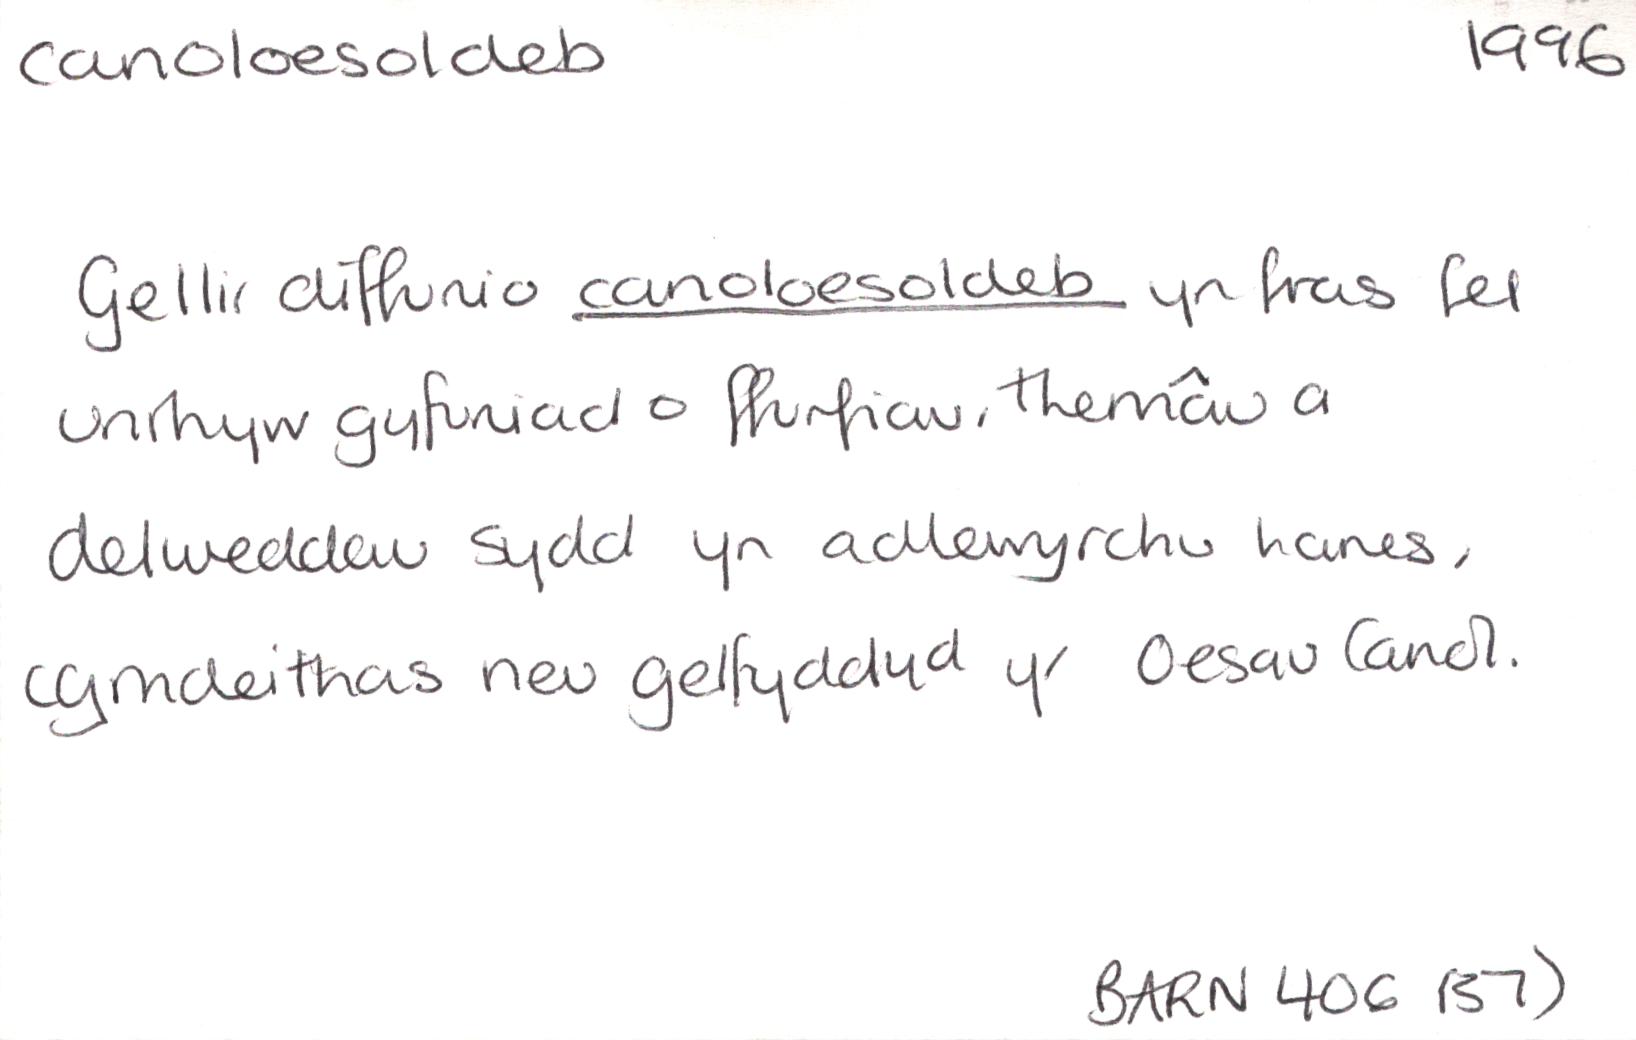 canoloesoldeb 1996
Gellir diffinio canoloesoldeb yn fras fel
unrhyw gyfuniad o ffurfiau, themâu a
delweddau sydd yn adlewyrchu hanes,
cymdeithas neu gelfyddyd yr Oesau Canol.
BARN 406 (37)